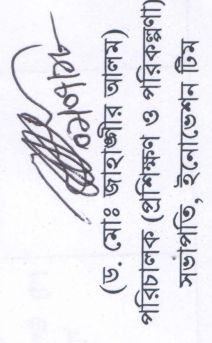 (ড. মোঃ জাহাঙ্গীর আলম)
পরিচালক (প্রশিক্ষণ ও পরিকল্পণা)
সভাপতি, ইনোভেশন টিম